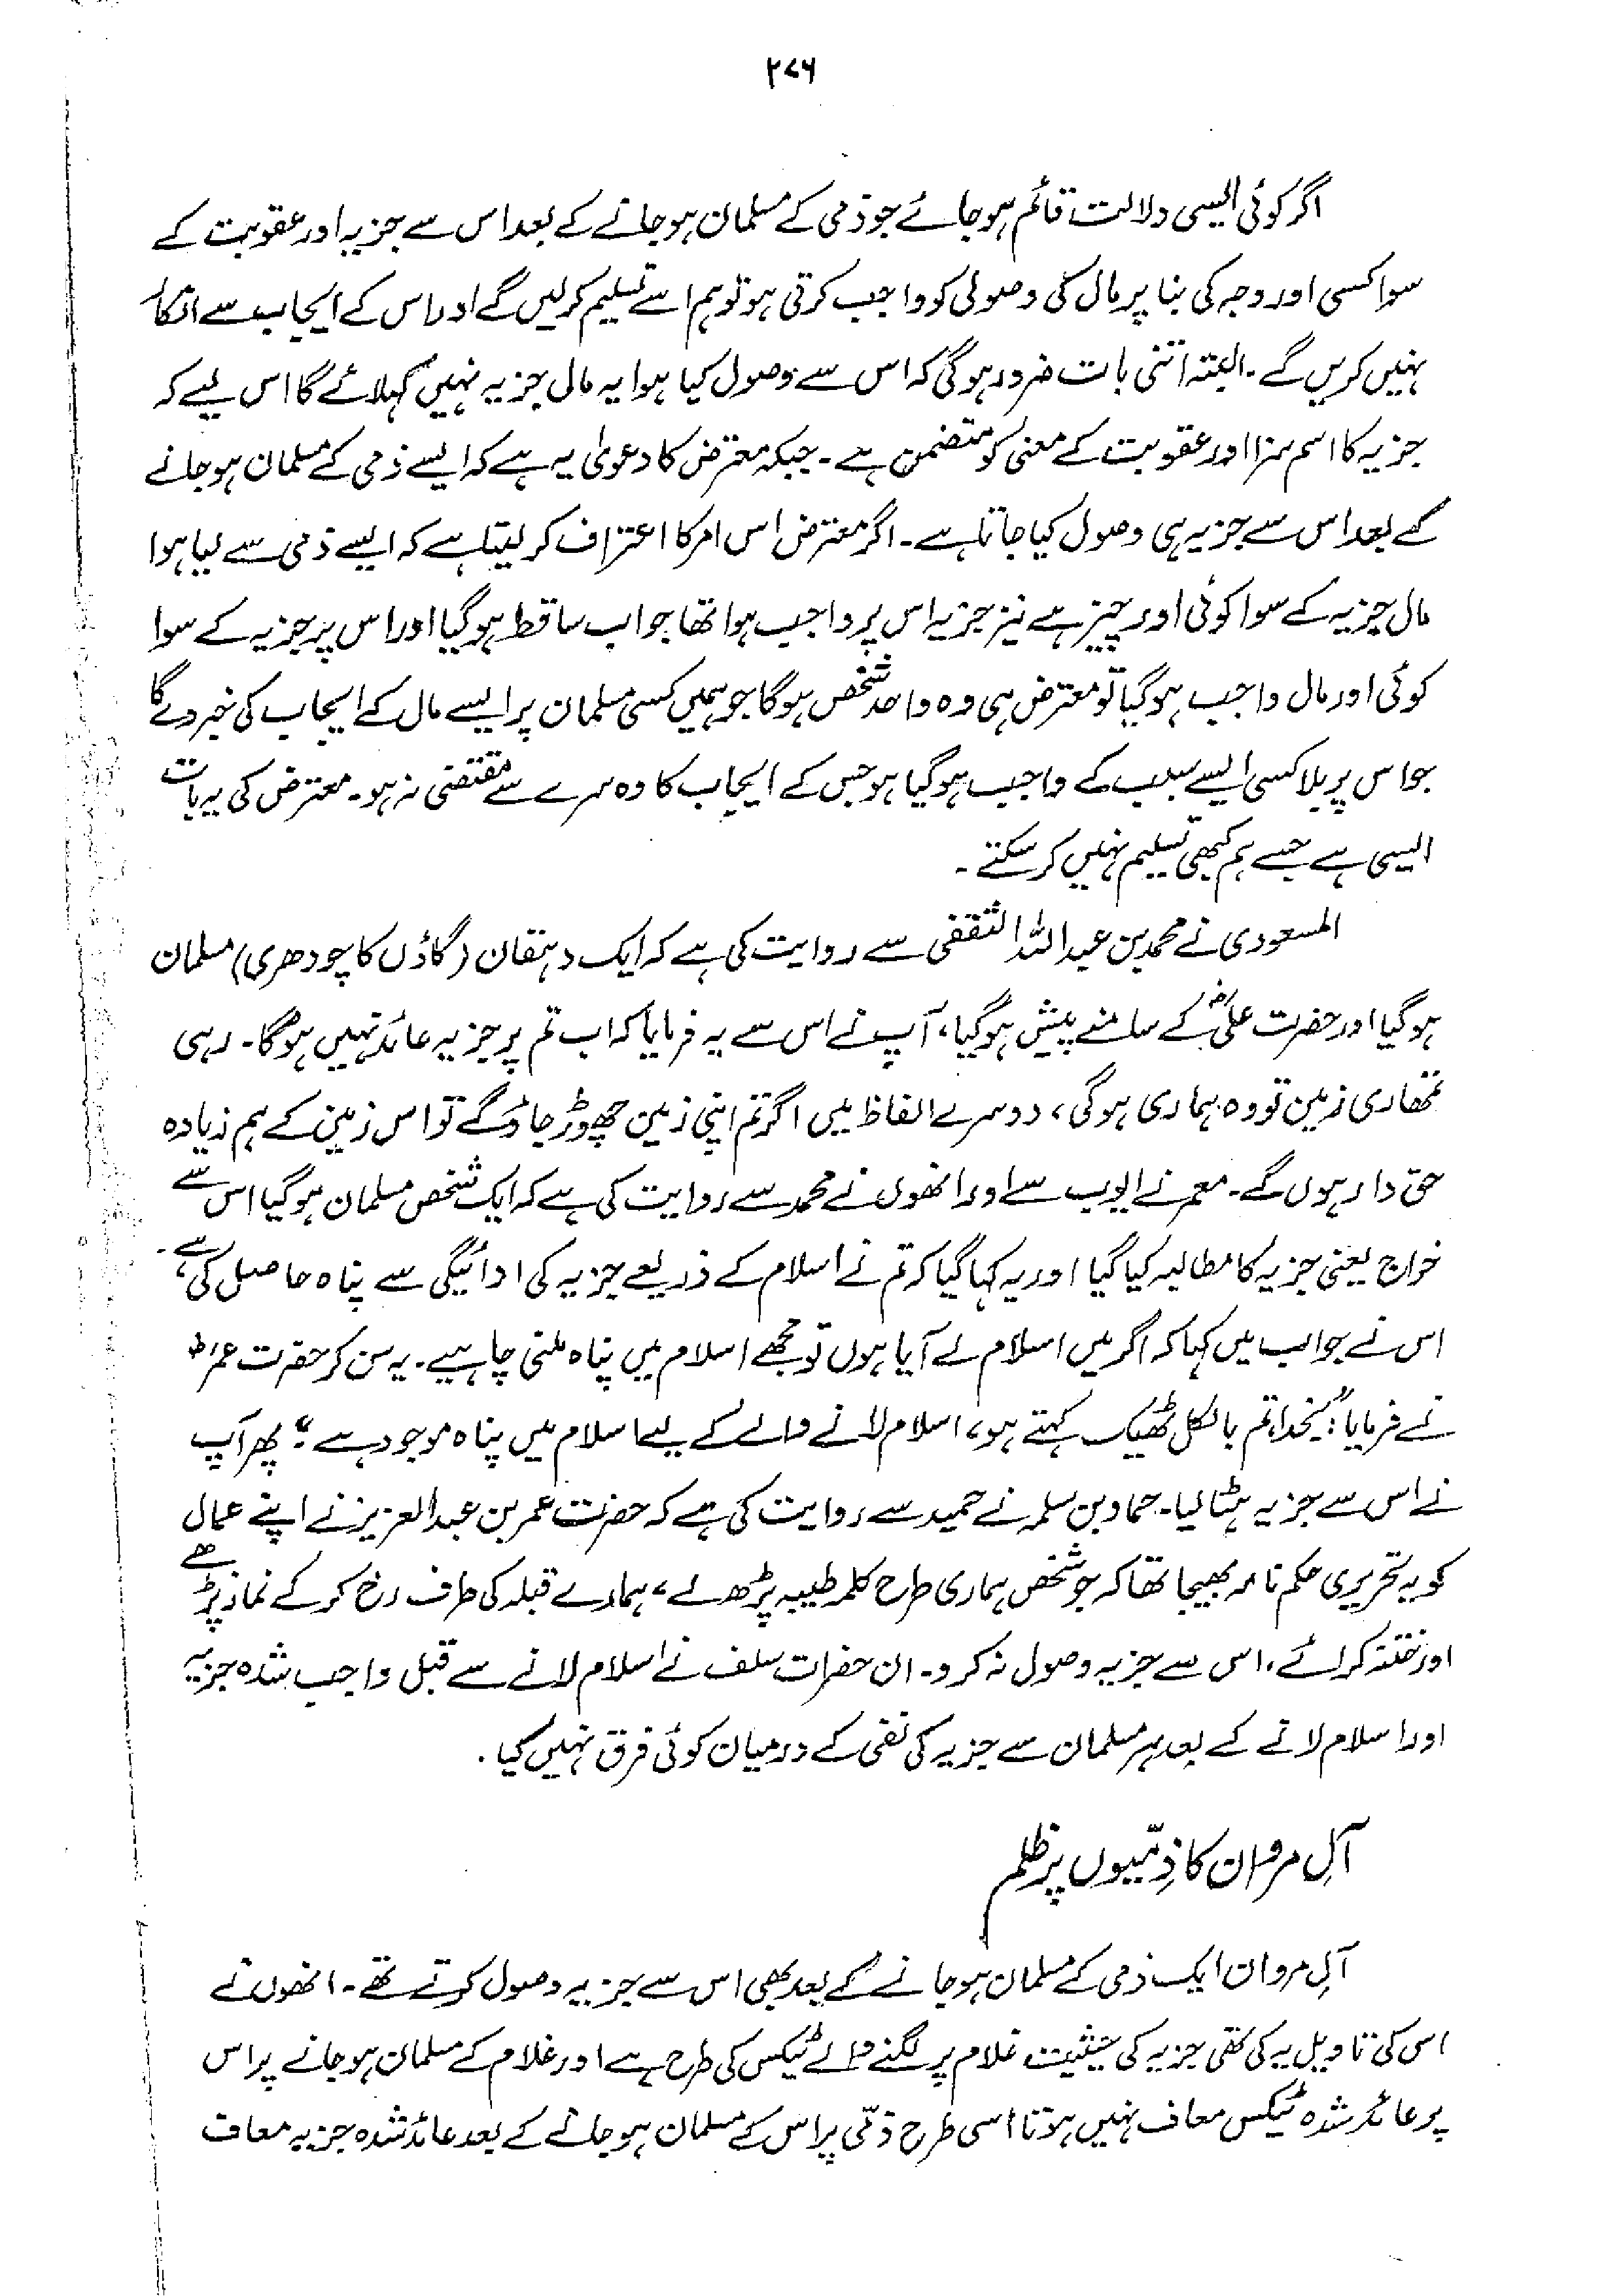 ۲۷۶
اگر کوئی ایسی دلالت قائم ہو جائے جو ذمی کے مسلمان ہو جانے کے بعد اس سے جزیہ اور عقوبت کے
سوا کسی اور وجہ کی بنا پر مال کی وصولی کو واجب کرتی ہو تو ہم اسے تسلیم کرلیں گے اور اس کے ایجاب سے انکار
نہیں کریں گے۔ البتہ اتنی بات ضرور ہوگی کہ اس سے وصول کیا ہوا یہ مال جزیہ نہیں کہلائے گا اس لیے کہ
جزیہ کا اسم سزا اور عقوبت کے معنی کو متضمن ہے۔ جبکہ معترض کا دعویٰ یہ ہے کہ ایسے ذمی کے مسلمان ہو جانے
کے بعد اس سے جزیہ ہی وصول کیا جاتا ہے۔ اگر معترض اس امر کا اعتراف کر لیتا ہے کہ ایسے ذمی سے لیا ہوا
مال جزیہ کے سوا کوئی اور چیز ہے نیز جزیہ اس پر واجب ہوا تھا جو اب ساقط ہوگیا اور اس پر جزیہ کے سوا
کوئی اور مال واجب ہوگیا تو معترض ہی وہ واحد شخص ہوگا جو ہمیں کسی مسلمان پر ایسے مال کے ایجاب کی خبر دے گا
جو اس پر بلا کسی ایسے سبب کے واجب ہوگیا ہو جس کے ایجاب کا وہ سرے سے مقتضی نہ ہو۔ معترض کی یہ بات
ایسی ہے جسے ہم کبھی تسلیم نہیں کر سکتے۔
المسعودی نے محمد بن عبداللہ الثقفی سے روایت کی ہے کہ ایک دہقان (گاؤں کا چودھری) مسلمان
ہوگیا اور حضرت علیؓ کے سامنے پیش ہوگیا، آپ نے اس سے یہ فرمایا کہ اب تم پر جزیہ عائد نہیں ہوگا۔ رہی
تمھاری زمین تو وہ ہماری ہوگی، دوسرے الفاظ میں اگر تم اپنی زمین چھوڑ جاؤ گے تو اس زمین کے ہم زیادہ
حق دار ہوں گے۔ معمر نے ایوب سے اور انھوں نے محمد سے روایت کی ہے کہ ایک شخص مسلمان ہوگیا اس سے
خراج یعنی جزیہ کا مطالبہ کیا گیا اور یہ کہا گیا کہ تم نے اسلام کے ذریعے جزیہ کی ادائیگی سے پناہ حاصل کی ہے۔
اس نے جواب میں کہا کہ اگر میں اسلام لے آیا ہوں تو مجھے اسلام میں پناہ ملنی چاہیے۔ یہ سن کر حضرت عمرؓ
نے فرمایا: "بخدا تم بالکل ٹھیک کہتے ہو، اسلام لانے والے کے لیے اسلام میں پناہ موجود ہے"؛ پھر آپ
نے اس سے جزیہ ہٹا لیا۔ حماد بن سلمہ نے حمید سے روایت کی ہے کہ حضرت عمر بن عبدالعزیز نے اپنے عمال
کو یہ تحریری حکم نامہ بھیجا تھا کہ جو شخص ہماری طرح کلمہ طیبہ پڑھ لے، ہمارے قبلہ کی طرف رخ کر کے نماز پڑھے
اور ختنہ کرائے، اس سے جزیہ وصول نہ کرو۔ ان حضرات سلف نے اسلام لانے سے قبل واجب شدہ جزیہ
اور اسلام لانے کے بعد ہر مسلمان سے جزیہ کی نفی کے درمیان کوئی فرق نہیں کیا۔
آلِ مروان کا ذِمّیوں پر ظلم
آلِ مروان ایک ذمی کے مسلمان ہو جانے کے بعد بھی اس سے جزیہ وصول کرتے تھے۔ انھوں نے
اس کی تاویل یہ کی تھی جزیہ کی حیثیت غلام پر لگنے والے ٹیکس کی طرح ہے اور غلام کے مسلمان ہو جانے پر اس
پر عائد شدہ ٹیکس معاف نہیں ہوتا اسی طرح ذمّی پر اس کے مسلمان ہو جانے کے بعد عائد شدہ جزیہ معاف